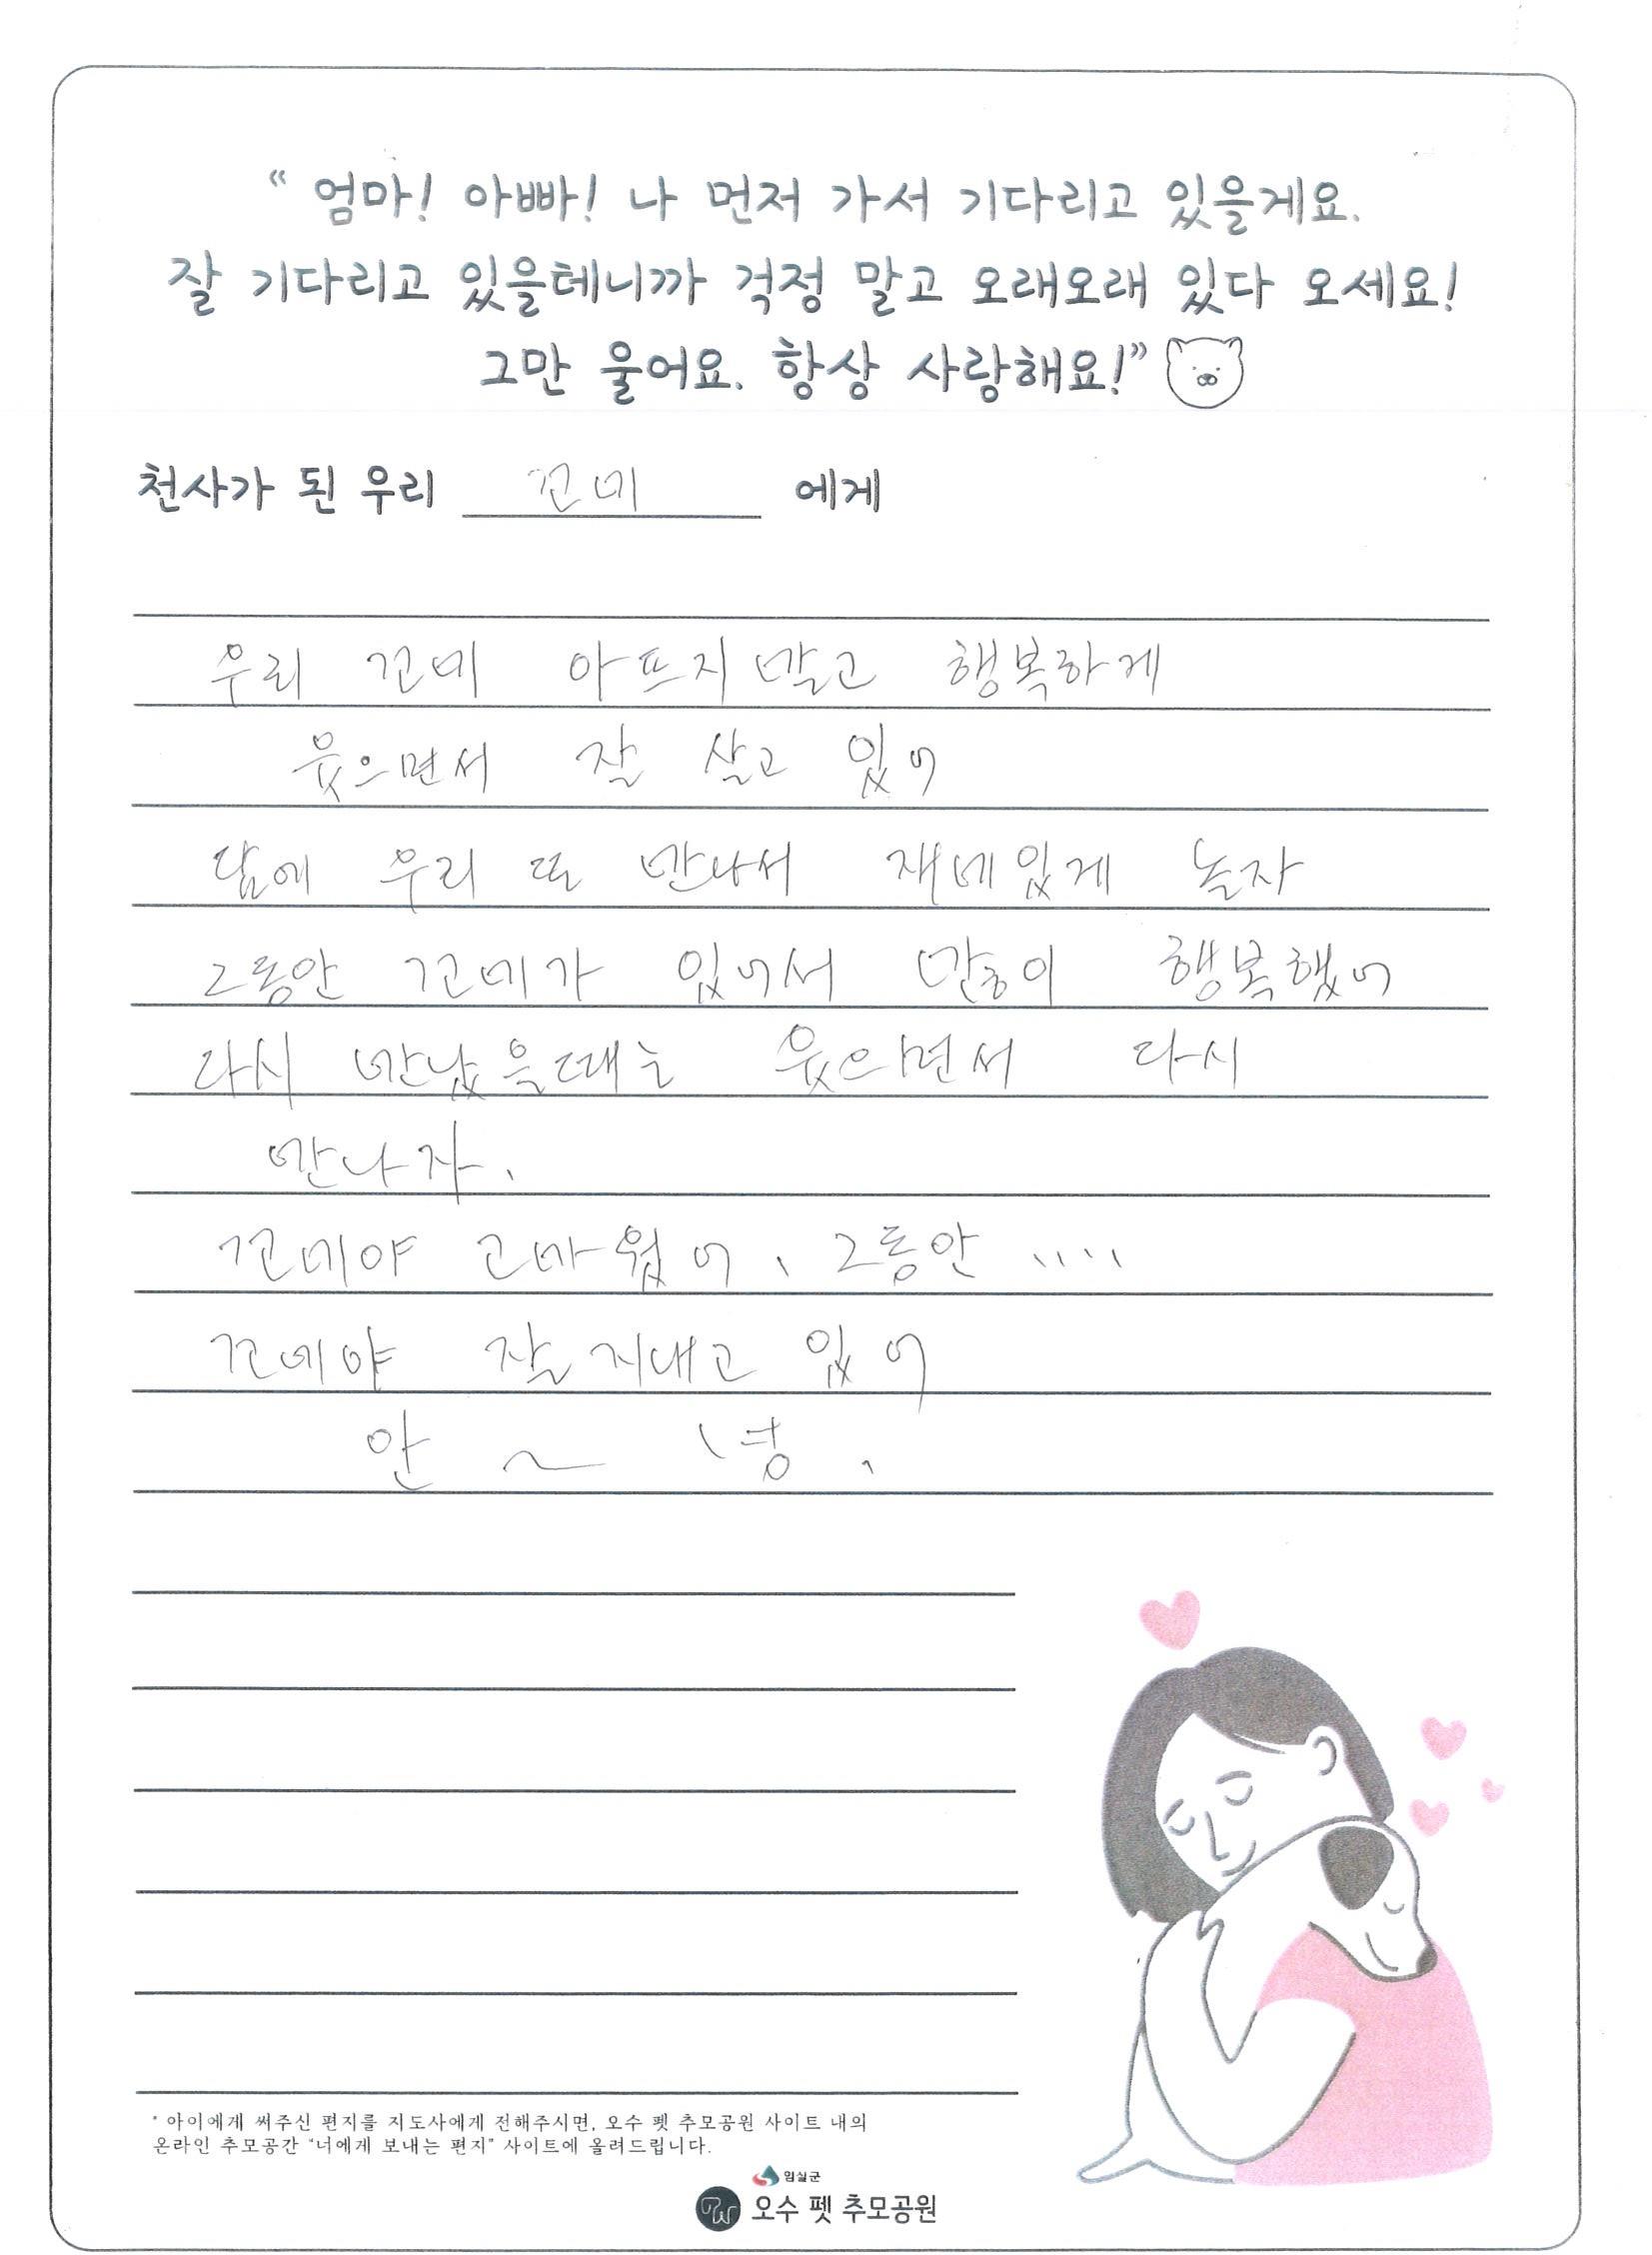 “ 엄마! 아빠! 나 먼저 가서 기다리고 있을게요.
잘 기다리고 있을테니까 걱정 말고 오래오래 있다 오세요!
그만 울어요. 항상 사랑해요!”
천사가 된 우리 꼬메 에게
우리 꼬메 아프지말고 행복하게
웃으면서 잘 살고 있어
담에 우리 또 만나서 재메있게 놀자
그동안 꼬메가 있어서 많이 행복했어
다시 만났을때는 웃으면서 다시
만나자.
꼬메야 고마웠어. 그동안 ....
꼬메야 잘 지내고 있어
안 ~ 녕.
* 아이에게 써주신 편지를 지도사에게 전해주시면, 오수 펫 추모공원 사이트 내의
온라인 추모공간 “너에게 보내는 편지” 사이트에 올려드립니다.
임실군
오수 펫 추모공원